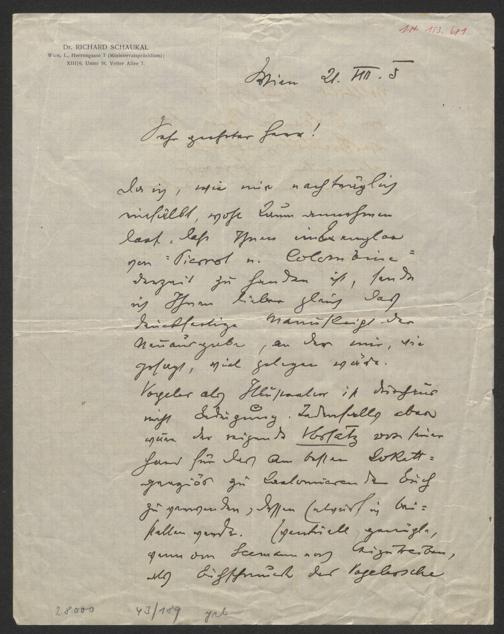 I.N. 153.641
Dr. RICHARD SCHAUKAL
Wien, I., Herrengasse 7 (Ministerratspräsidium)
XIII/6, Unter St. Veiter Allee 7.
Wien 21. VIII. 5
Sehr geehrter Herr!
Da ich, wie mir nachträglich
einfällt, wohl kaum annehmen
darf, daß Ihnen ein Exemplar
von "Pierrot u. Colombine"
derzeit zu Handen ist, sende
ich Ihnen lieber gleich das
druckfertige Manuskript der
Neuausgabe, an der mir, wie
gesagt, viel gelegen wäre.
Vogeler als Illustrator ist durchaus
nicht Bedingung. Jedenfalls aber
wäre der reizende Vorsatz von seiner
Hand für das am besten
zu Buch
zu verwenden, dessen Entwurf ich bei-
stellen werde. Eventuell genügte,
wenn von Seemann noch aufzutreiben,
als Buchschmuck der Vogelersche
28000 43/189